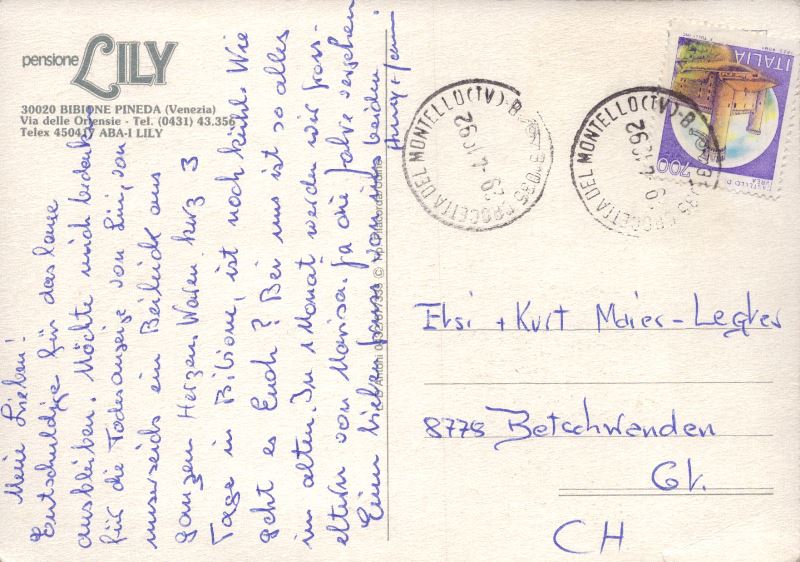 pensione LILY
30020 BIBIONE PINEDA (Venezia)
Via delle Ortensie - Tel. (0431) 43.356
Telex 450417 ABA-I LILY
Meine Lieben!
Entschuldige für das lange
ausbleiben. Möchte mich bedanken
für die Todesanzeige von Lini, von
unserseits ein Beileid aus
ganzem Herzen. Waren kurz 3
Tage in Bibione, ist noch kühl. Wie
geht es Euch? Bei uns ist so alles
im alten. Im Monat werden wir gross-
eltern von Marisa. Ja die Jahre vergehen.
Einen lieben von uns beiden
CROCETTA DEL MONTELLO (TV)-B
CROCETTA DEL MONTELLO (TV)-B
ITALIA
700
Elsi + Kurt Maier-Legler
8778 Betschwanden
Gl.
CH